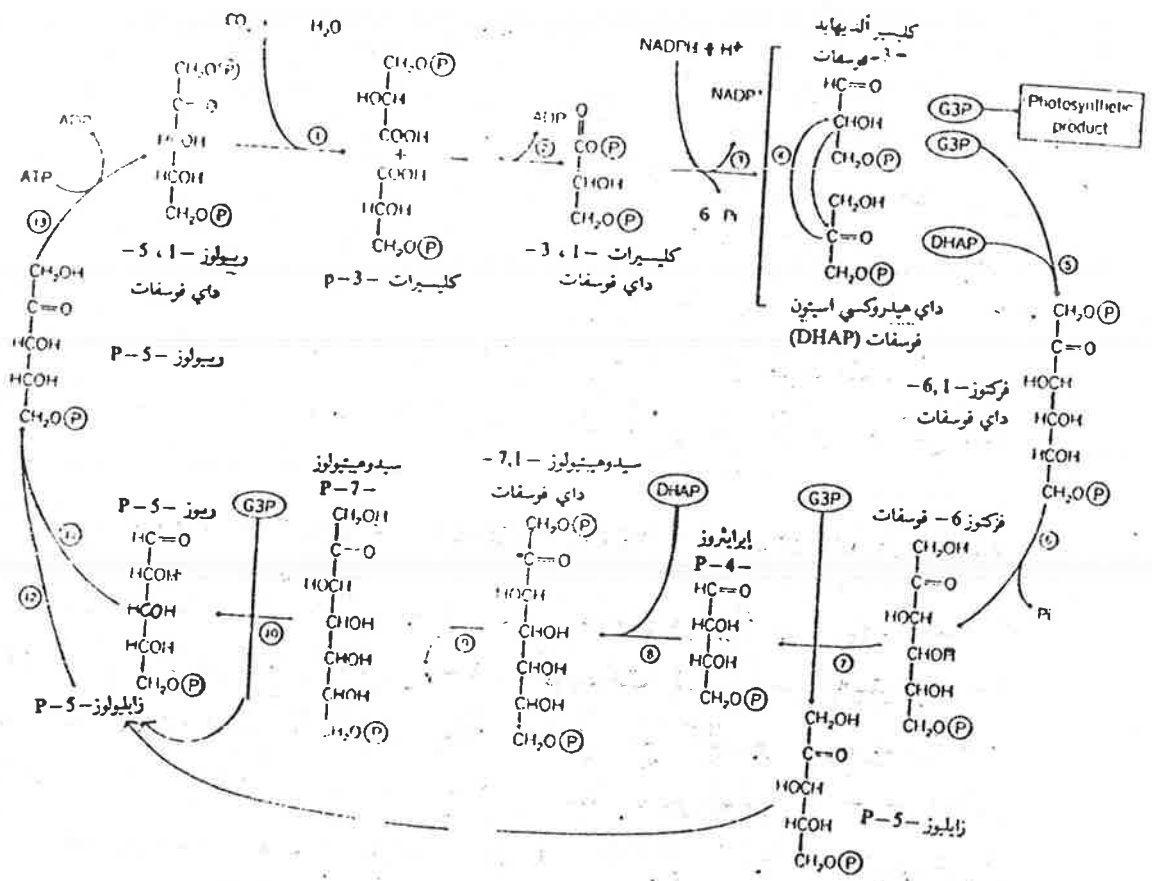 H₂O
CH₂OⓅ
C=O
HCOH
HCOH
CH₂OⓅ
ADP
ATP
⑬
رييولوز -1 ، 5-
داي فوسفات
①
CH₂OⓅ
HOCH
COOH
+
COOH
HCOH
CH₂OⓅ
كليسيرات -3-p
ADP
②
O
COⓅ
CHOH
CH₂OⓅ
كليسيرات -1 ، 3-
داي فوسفات
NADPH + H⁺
NADP⁺
③
6 Pi
كليسير ألديهايد
-3- فوسفات
HC=O
CHOH
CH₂OⓅ
④
CH₂OH
C=O
CH₂OⓅ
داي هيدروكسي اسيتون
فوسفات (DHAP)
G3P
Photosynthetic
product
G3P
DHAP
⑤
CH₂OⓅ
C=O
HOCH
HCOH
HCOH
CH₂OⓅ
فركتوز -6,1-
داي فوسفات
⑥
Pi
CH₂OH
C=O
HCOH
HCOH
CH₂OⓅ
رييولوز -5-P
فركتوز 6- فوسفات
CH₂OH
C=O
HOCH
CHOH
CHOH
CH₂OⓅ
G3P
⑦
CH₂OH
C=O
HOCH
HCOH
CH₂OⓅ
زايليوز -5-P
إيرايثروز
P-4-
HC=O
HCOH
HCOH
CH₂OⓅ
DHAP
⑧
سيدوهيبتولوز -7,1-
داي فوسفات
CH₂OⓅ
C=O
HOCH
CHOH
CHOH
CHOH
CH₂OⓅ
⑨
سيدوهيبتولوز
P-7-
CH₂OH
C=O
HOCH
HCOH
HCOH
CHOH
CH₂OⓅ
G3P
⑩
ريبوز -5-P
HC=O
HCOH
HCOH
HCOH
CH₂OⓅ
⑫
زايليولوز -5-P